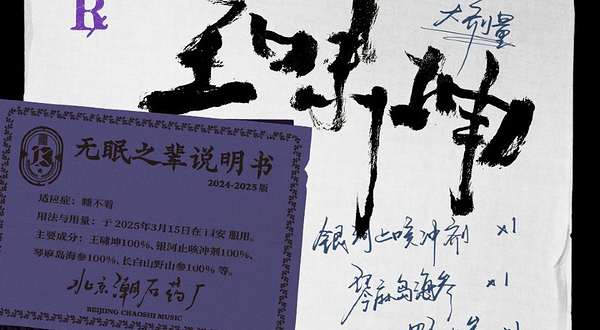 R
大剂量
王啸坤
无眠之辈说明书
2024-2025版
适应症：睡不着
用法与用量：于 2025年3月15日在 西安 服用。
主要成分：王啸坤100%、银河止咳冲剂100%、
琴麻岛海参100%、长白山野山参100% 等。
北京潮石药厂
BEIJING CHAOSHI MUSIC
银河止咳冲剂 x1
琴麻岛海参 x1